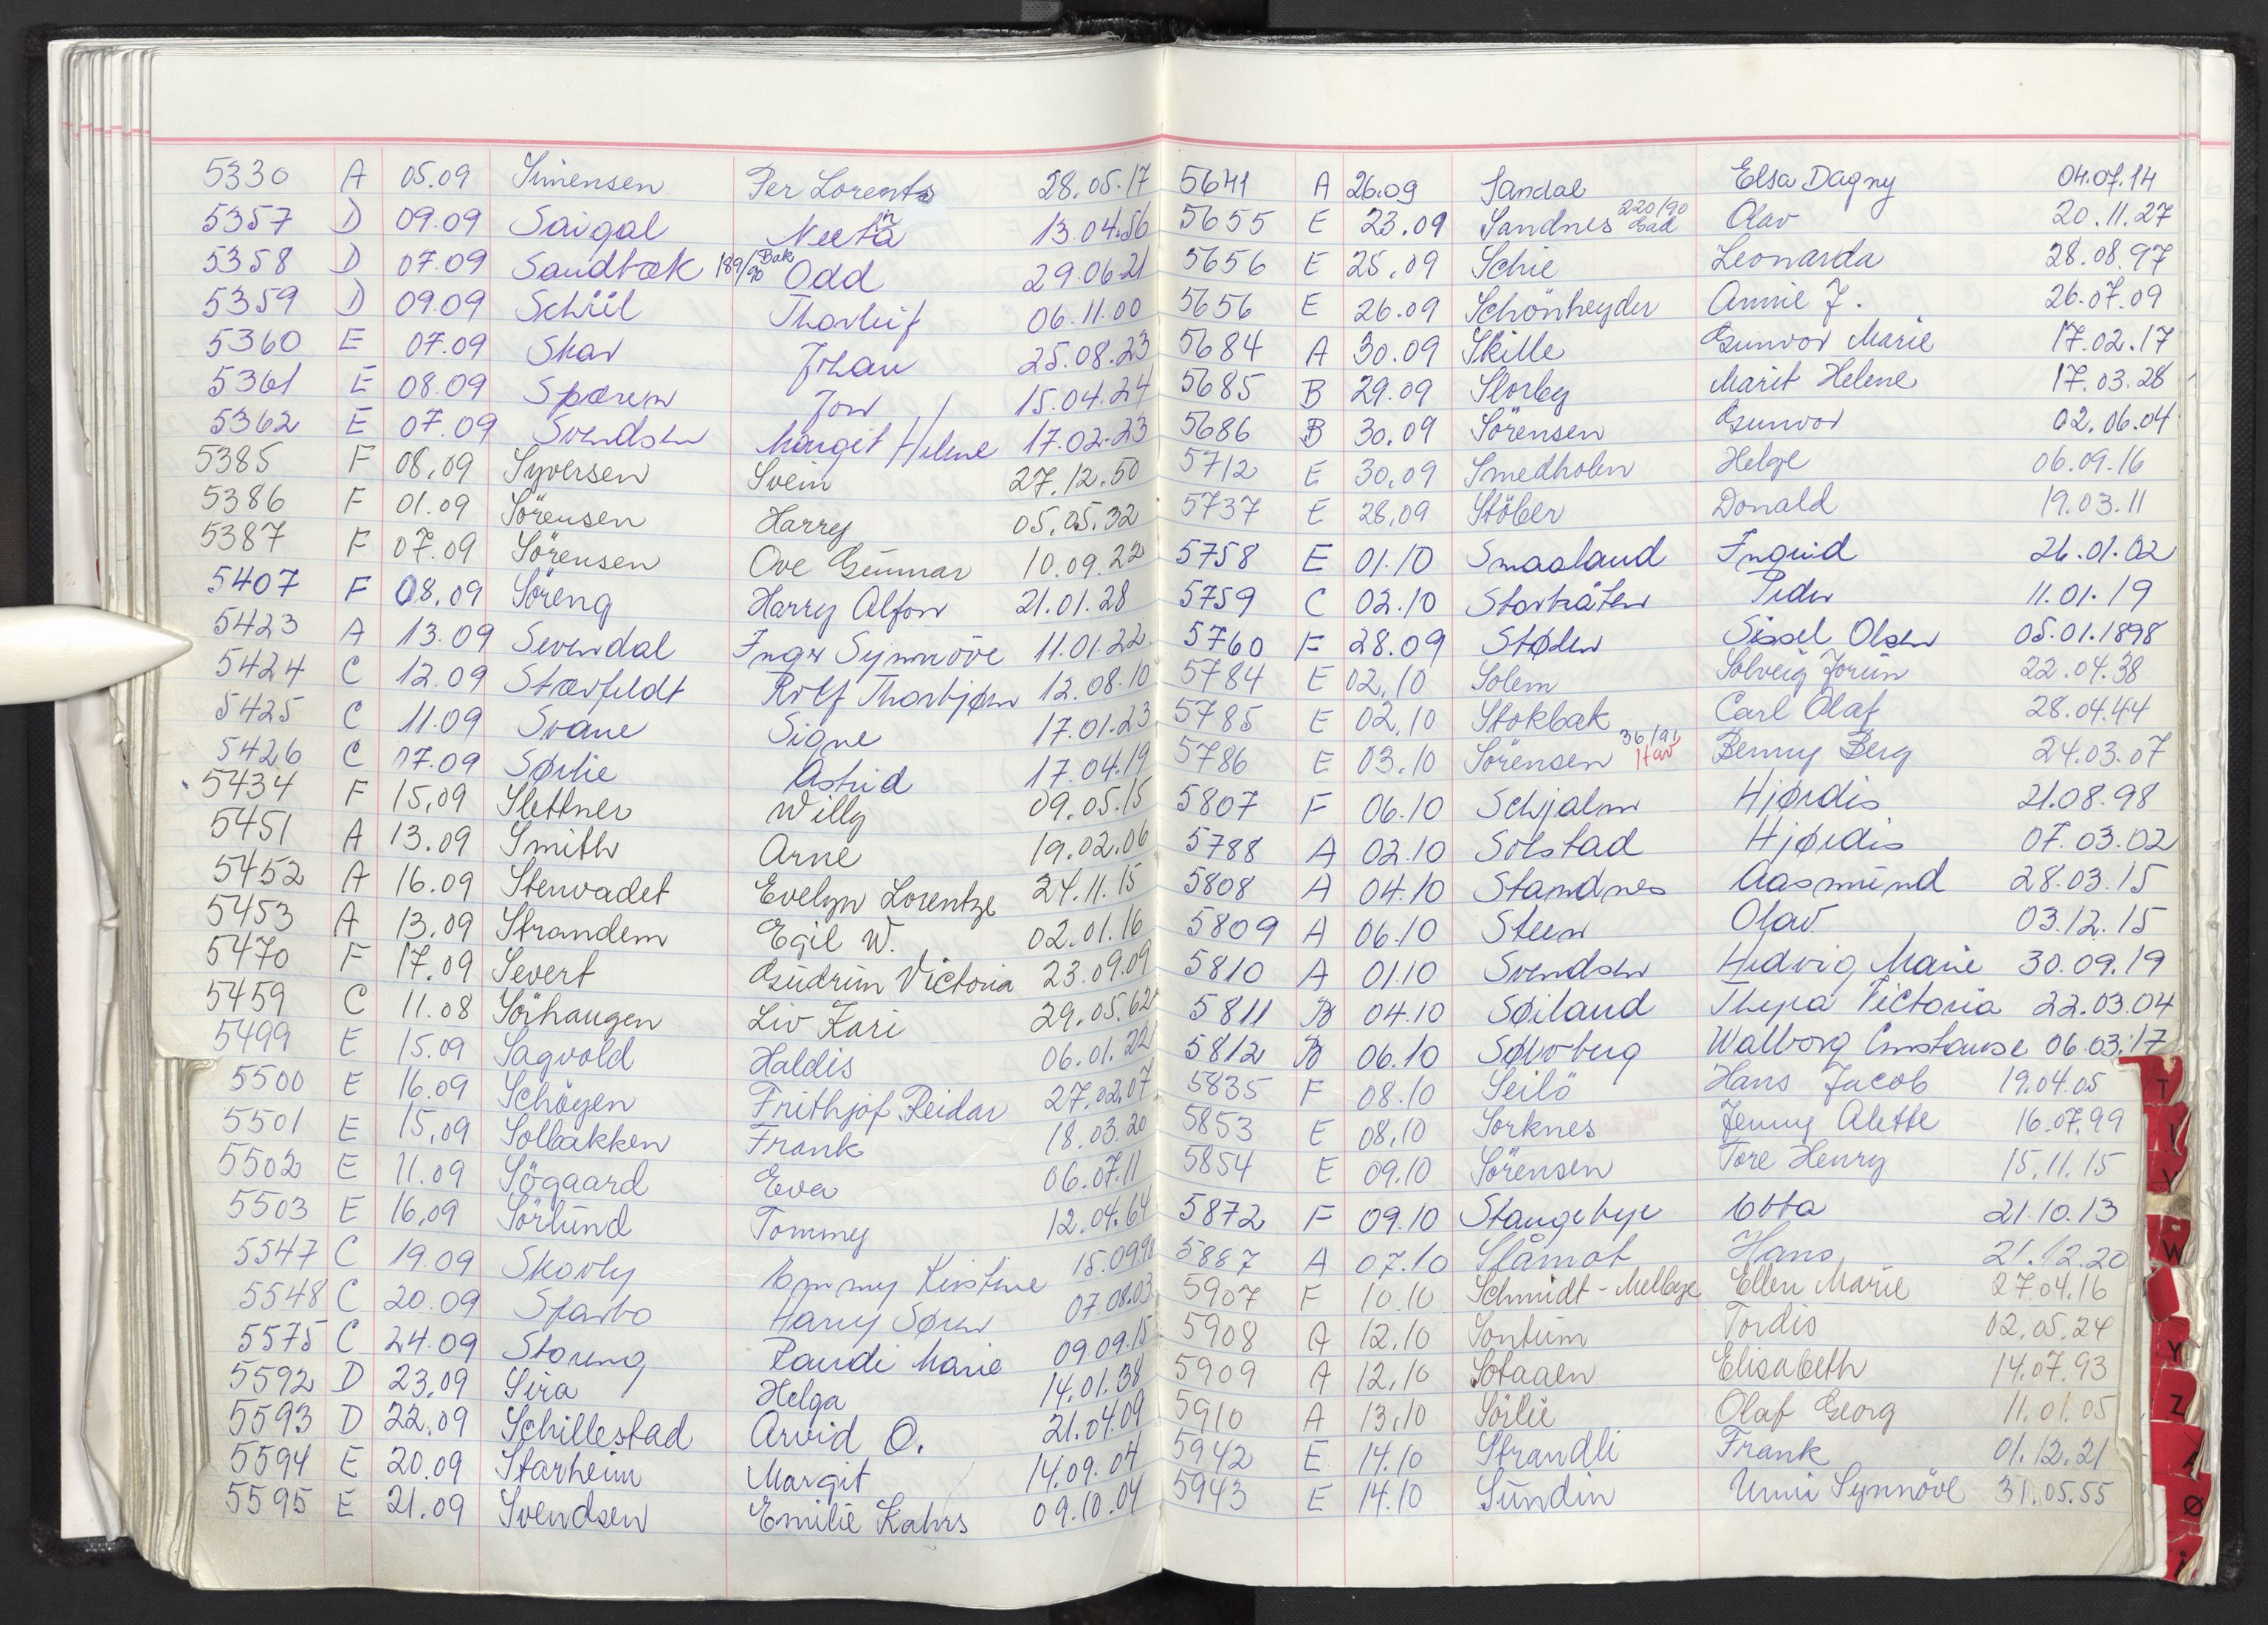 5330 A 05.09 Simensen Per Lorents 28.05.17
5357 D 09.09 Saigal Neeta 13.04.56
5358 D 07.09 Sandbæk 189/90 Bak Odd 29.06.21
5359 D 09.09 Schiil Thorleif 06.11.00
5360 E 07.09 Skar Johan 25.08.23
5361 E 08.09 Spæren Jon 15.04.24
5362 E 07.09 Svendsen Margit Helene 17.02.23
5385 F 08.09 Syversen Svein 27.12.50
5386 F 01.09 Sörensen Harry 05.05.32
5387 F 07.09 Sörensen Ove Gunnar 10.09.22
5407 F 08.09 Söreng Harry Alfon 21.01.28
5423 A 13.09 Sevendal Inger Synnöve 11.01.22
5424 C 12.09 Stærfeldt Rolf Thorbjørn 12.08.10
5425 C 11.09 Svane Signe 17.01.23
5426 C 17.09 Sørlie Astrid 17.04.19
5434 F 15.09 Slettner Willy 09.05.15
5451 A 13.09 Smith Arne 19.02.06
5452 A 16.09 Stenvadet Evelyn Lorentze 24.11.15
5453 A 13.09 Strandem Egil W. 02.01.16
5470 F 17.09 Severt Gudrun Victoria 23.09.09
5459 C 11.08 Sörhaugen Liv Kari 29.05.62
5499 E 15.09 Sagvold Haldis 06.01.22
5500 E 16.09 Schöyen Frithjof Reidar 27.02.07
5501 E 15.09 Solbakken Frank 18.03.20
5502 E 11.09 Sögaard Eva 06.07.11
5503 E 16.09 Sörlund Tommy 12.04.64
5547 C 19.09 Skovly Emmy Kirstine 15.09.98
5548 C 20.09 Sparbo Harry Søren 07.08.03
5575 C 24.09 Storeng Randi Marie 09.09.15
5592 D 23.09 Sira Helga 14.01.38
5593 D 22.09 Schillestad Arvid O. 21.04.09
5594 E 20.09 Starheim Margit 14.09.04
5595 E 21.09 Svendsen Emilie Kahrs 09.10.04
5641 A 26.09 Sandal Elsa Dagny 04.07.14
5655 E 23.09 Sandnes 220/90 Olav 20.11.27
5656 E 25.09 Schie Leonarda 28.08.97
5656 E 26.09 Schönheyder Annie J. 26.07.09
5684 A 30.09 Skille Gunvor Marie 17.02.17
5685 B 29.09 Slorby Marit Helene 17.03.28
5686 B 30.09 Sörensen Gunvor 02.06.04
5712 E 30.09 Smedholen Helge 06.09.16
5737 E 28.09 Stöber Donald 19.03.11
5758 E 01.10 Smaaland Ingrid 26.01.02
5759 C 02.10 Storbråten Peder 11.01.19
5760 F 28.09 Stølen Sissel Olsen 05.01.1898
5784 E 02.10 Solem Solveig Jorun 22.04.38
5785 E 02.10 Stokbak Carl Olaf 28.04.44
5786 E 03.10 Sörensen 36/91 Hav Benny Berg 24.03.07
5807 F 06.10 Schjalm Hjørdis 21.08.98
5788 A 02.10 Solstad Hjørdis 07.03.02
5808 A 04.10 Standnes Aasmund 28.03.15
5809 A 06.10 Steen Olav 03.12.15
5810 A 01.10 Svendsen Hedvig Marie 30.09.19
5811 B 04.10 Søiland Thyra Victoria 22.03.04
5812 B 06.10 Sølvberg Walborg Constanse 06.03.17
5835 F 08.10 Seilö Hans Jacob 19.04.05
5853 E 08.10 Sorknes Jenny Alette 16.07.99
5854 E 09.10 Sörensen Tore Henry 15.11.15
5872 F 09.10 Stangebye Ebba 21.10.13
5887 A 07.10 Slåmot Hans 21.12.20
5907 F 10.10 Schmidt-Melbye Ellen Marie 27.04.16
5908 A 12.10 Sontum Tordis 02.05.24
5909 A 12.10 Sotaaen Elisabeth 14.07.93
5910 A 13.10 Sörlie Olaf Georg 11.01.05
5942 E 14.10 Strandli Frank 01.12.21
5943 E 14.10 Sundin Unni Synnöve 31.05.55
T
V
W
Y
Z
Ø